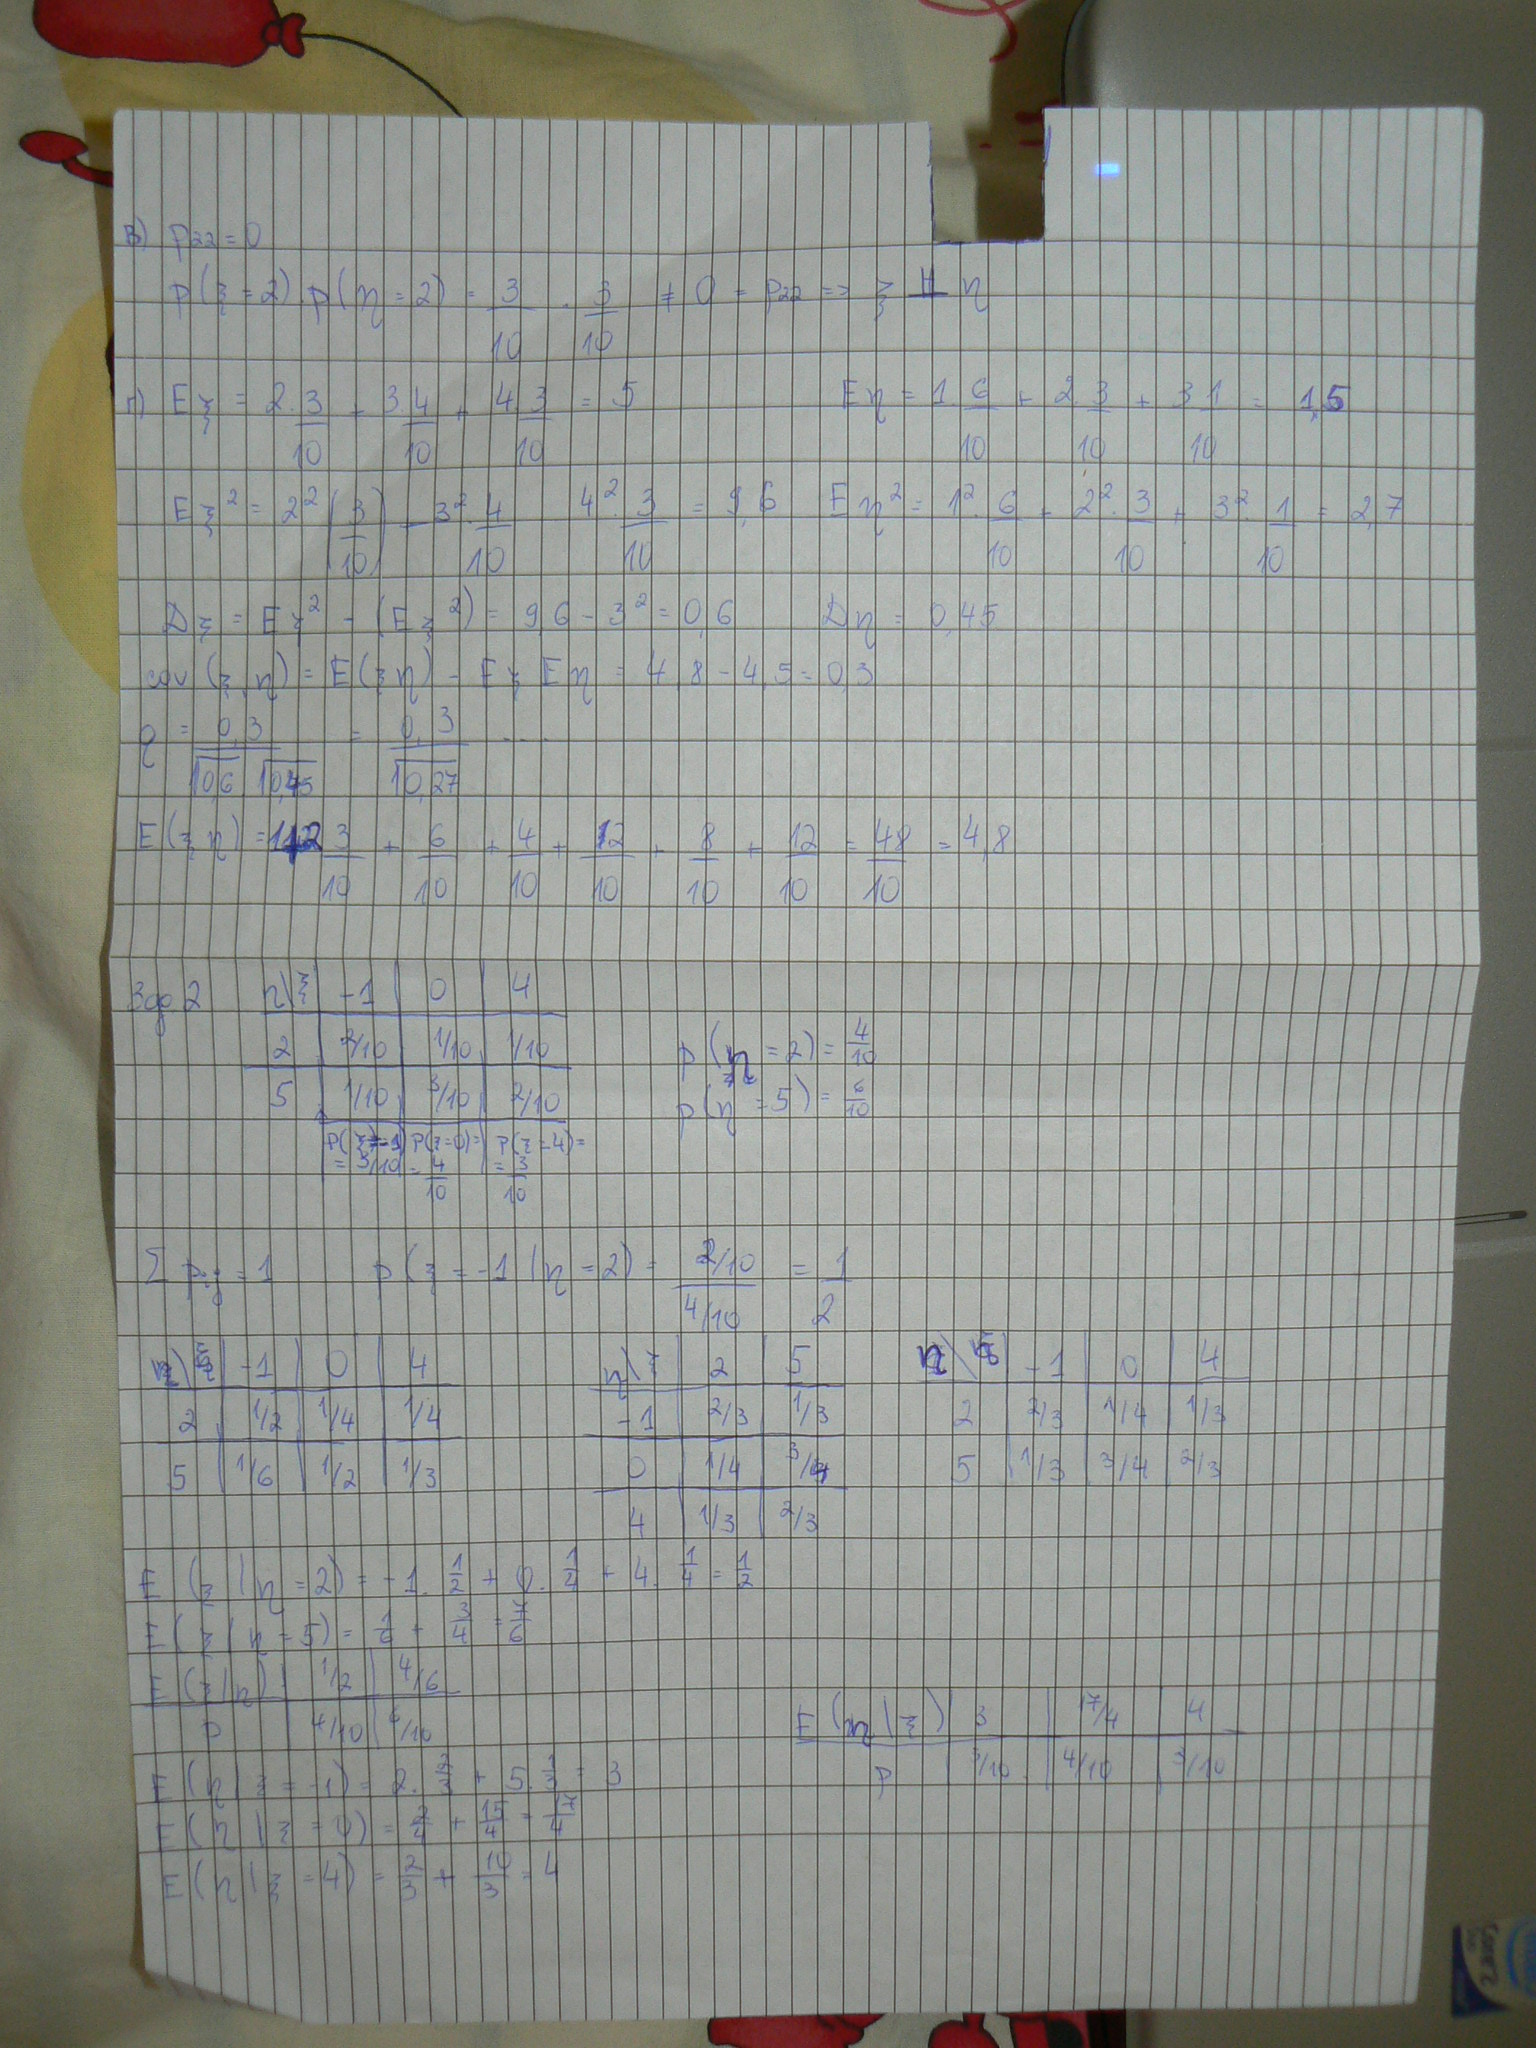 в) p22 = 0
p(ξ=2).p(η=2) = 3/10 . 3/10 ≠ 0 = p22 => ξ ⫫̸ η
г) Eξ = 2.3/10 + 3 4/10 + 4.3/10 = 5 Eη = 1.6/10 + 2.3/10 + 3 1/10 = 1,5
Eξ² = 2² (3/10) - 3².4/10 4².3/10 = 9,6 Eη² = 1².6/10 + 2².3/10 + 3².1/10 = 2,7
Dξ = Eξ² - (Eξ²) = 9,6 - 3² = 0,6 Dη = 0,45
cov(ξ,η) = E(ξη) - Eξ Eη = 4,8 - 4,5 = 0,3
ρ = 0,3/√0,6 √0,45 = 0,3/√0,27 ....
E(ξη) = 3/10 + 6/10 + 4/10 + 12/10 + 8/10 + 12/10 = 48/10 = 4,8
Зад 2 η\ξ -1 0 4
2 2/10 1/10 1/10 p(η=2) = 4/10
5 1/10 3/10 2/10 p(η=5) = 6/10
P(ξ=-1) = 3/10 P(ξ=0) = 4/10 P(ξ=4) = 3/10
Σpij = 1 p(ξ=-1|η=2) = 2/10 / 4/10 = 1/2
η\ξ -1 0 4 η\ξ 2 5 η\ξ -1 0 4
2 1/2 1/4 1/4 -1 2/3 1/3 2 2/3 1/4 1/3
5 1/6 1/2 1/3 0 1/4 3/4 5 1/3 3/4 2/3
4 1/3 2/3
E(ξ|η=2) = -1.1/2 + 0.1/4 + 4.1/4 = 1/2
E(ξ|η=5) = 1/6 + 3/4 = 7/6
E(ξ|η) 1/2 4/6
p 4/10 6/10
E(η|ξ) 3 17/4 4
p 3/10 4/10 3/10
E(η|ξ=-1) = 2.2/3 + 5.1/3 = 3
E(η|ξ=0) = 2/4 + 15/4 = 17/4
E(η|ξ=4) = 2/3 + 10/3 = 4